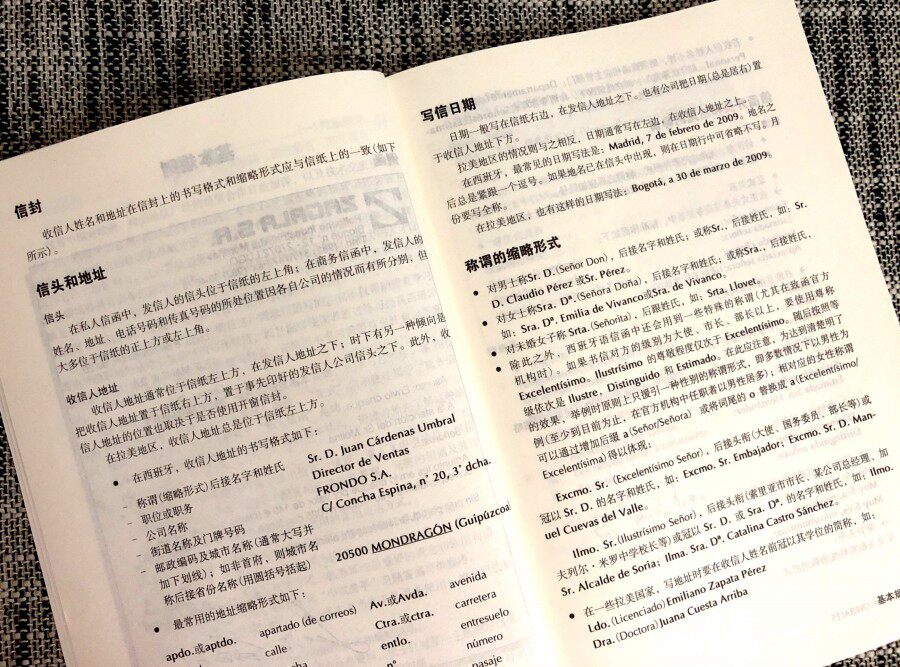 信封
收信人姓名和地址在信封上的书写格式和缩略形式应与信纸上的一致(如下
所示)。
信头和地址
信头
在私人信函中，发信人的信头位于信纸的左上角；在商务信函中，发信人的
姓名、地址、电话号码和传真号码的所处位置因各自公司的情况而有所分别，但
大多位于信纸的正上方或左上角。
收信人地址
收信人地址通常位于信纸左上方，在发信人地址之下；时下有另一种倾向是
把收信人地址置于信纸右上方，置于事先印好的发信人公司信头之下。此外，收
信人地址的位置也取决于是否使用开窗信封。
在拉美地区，收信人地址总是位于信纸左上方。
• 在西班牙，收信人地址的书写格式如下：
– 称谓(缩略形式)后接名字和姓氏
Sr. D. Juan Cárdenas Umbral
– 职位或职务
Director de Ventas
– 公司名称
FRONDO S.A.
– 街道名称及门牌号码
C/ Concha Espina, n° 20, 3° dcha.
– 邮政编码及城市名称(通常大写并
加下划线)；如非首府，则城市名
称后接省份名称(用圆括号括起)
20500 MONDRAGÓN (Guipúzcoa)
• 最常用的地址缩略形式如下：
apdo.或aptdo. apartado (de correos) Av.或Avda. avenida
calle Ctra.或ctra. carretera
entlo. entresuelo
n° número
pasaje
写信日期
日期一般写在信纸右边，在发信人地址之下。也有公司把日期(总是居右)置
于收信人地址下方。
拉美地区的情况则与之相反，日期通常写在左边，在收信人地址之上。
在西班牙，最常见的日期写法是：Madrid, 7 de febrero de 2009。地名之
后总是紧跟一个逗号。如果地名已在信头中出现，则在日期行中可省略不写。月
份要写全称。
在拉美地区，也有这样的日期写法：Bogotá, a 30 de marzo de 2009。
称谓的缩略形式
• 对男士称Sr. D.(Señor Don)，后接名字和姓氏；或称Sr.，后接姓氏，如：Sr.
D. Claudio Pérez 或Sr. Pérez。
• 对女士称Sra. Dª.(Señora Doña)，后接名字和姓氏；或称Sra.，后接姓氏，
如：Sra. Dª. Emilia de Vivanco或Sra. de Vivanco。
• 对未婚女子称 Srta.(Señorita)，后跟姓氏，如：Srta. Llovet。
• 除此之外，西班牙语信函中还会用到一些特殊的称谓(尤其在致函官方
机构时)。如果书信对方的级别为大使、市长、部长以上，要使用尊称
Excelentísimo。Ilustrísimo 的尊敬程度仅次于 Excelentísimo。随后按照等
级依次是 Ilustre，Distinguido 和 Estimado。在此应注意，为达到清楚明了
的效果，举例时原则上只援引一种性别的称谓形式，即多数情况下以男性为
例(至少到目前为止，在官方机构中任职者以男性居多)；相对应的女性称谓
可以通过增加后缀 a (Señor/Señora) 或将词尾的 o 替换成 a (Excelentísimo/
Excelentísima) 得以体现：
Excmo. Sr. (Excelentísimo Señor)，后接头衔(大使、国务委员、部长等)或
冠以 Sr. D. 的名字和姓氏，如：Excmo. Sr. Embajador；Excmo. Sr. D. Man-
uel Cuevas del Valle。
Ilmo. Sr.(Ilustrísimo Señor)，后接头衔(索里亚市市长、某公司总经理、加
夫列尔·米罗中学校长等)或冠以 Sr. D. 或 Sra. Dª. 的名字和姓氏，如：Ilmo.
Sr. Alcalde de Soria；Ilma. Sra. Dª. Catalina Castro Sánchez。
• 在一些拉美国家，写地址时要在收信人姓名前冠以其学位的简称，如：
Ldo.(Licenciado) Emiliano Zapata Pérez
Dra.(Doctora) Juana Cuesta Arriba